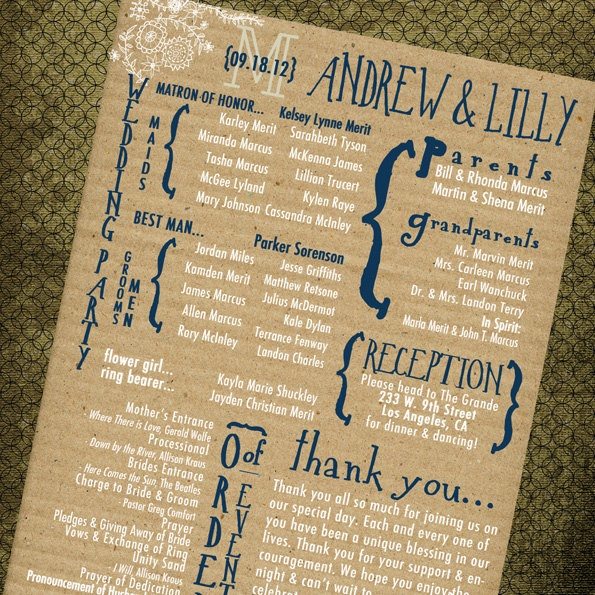 {09.18.12}
M
ANDREW & LILLY
WEDDING PARTY
MATRON OF HONOR... Kelsey Lynne Merit
MAIDS
Karley Merit Sarahbeth Tyson
Miranda Marcus McKenna James
Tasha Marcus Lillian Trucert
McGee Lyland Kylen Raye
Mary Johnson Cassandra McInley
BEST MAN... Parker Sorenson
GROOMSMEN
Jordan Miles Jesse Griffiths
Kamden Merit Matthew Retsone
James Marcus Julius McDermot
Allen Marcus Kale Dylan
Rory McInley Terrance Fenway
Landon Charles
flower girl... Kayla Marie Shuckley
ring bearer... Jayden Christian Merit
Parents
Bill & Rhonda Marcus
Martin & Shena Merit
grandparents
Mr. Marvin Merit
Mrs. Carleen Marcus
Earl Wanchuck
Dr. & Mrs. Landon Terry
In Spirit:
Maria Merit & John T. Marcus
RECEPTION
Please head to The Grande
233 W. 9th Street
Los Angeles, CA
for dinner & dancing!
ORDE
of
EVENT
Mother's Entrance
- Where There is Love, Gerald Wolfe
Processional
- Down by the River, Allison Kraus
Brides Entrance
- Here Comes the Sun, The Beatles
Charge to Bride & Groom
- Pastor Greg Comfort
Prayer
Pledges & Giving Away of Bride
Vows & Exchange of Ring
Unity Sand
- I Will, Allison Kraus
Prayer of Dedication
Pronouncement of
thank you...
Thank you all so much for joining us on
our special day. Each and every one of
you have been a unique blessing in our
lives. Thank you for your support & en-
couragement. We hope you enjoy the
night & can't wait to